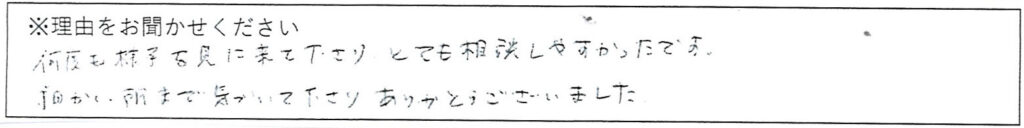 ※理由をお聞かせください
何度も様子を見に来て下さり とても相談しやすかったです。
細かい所まで気づいて下さり ありがとうございました。